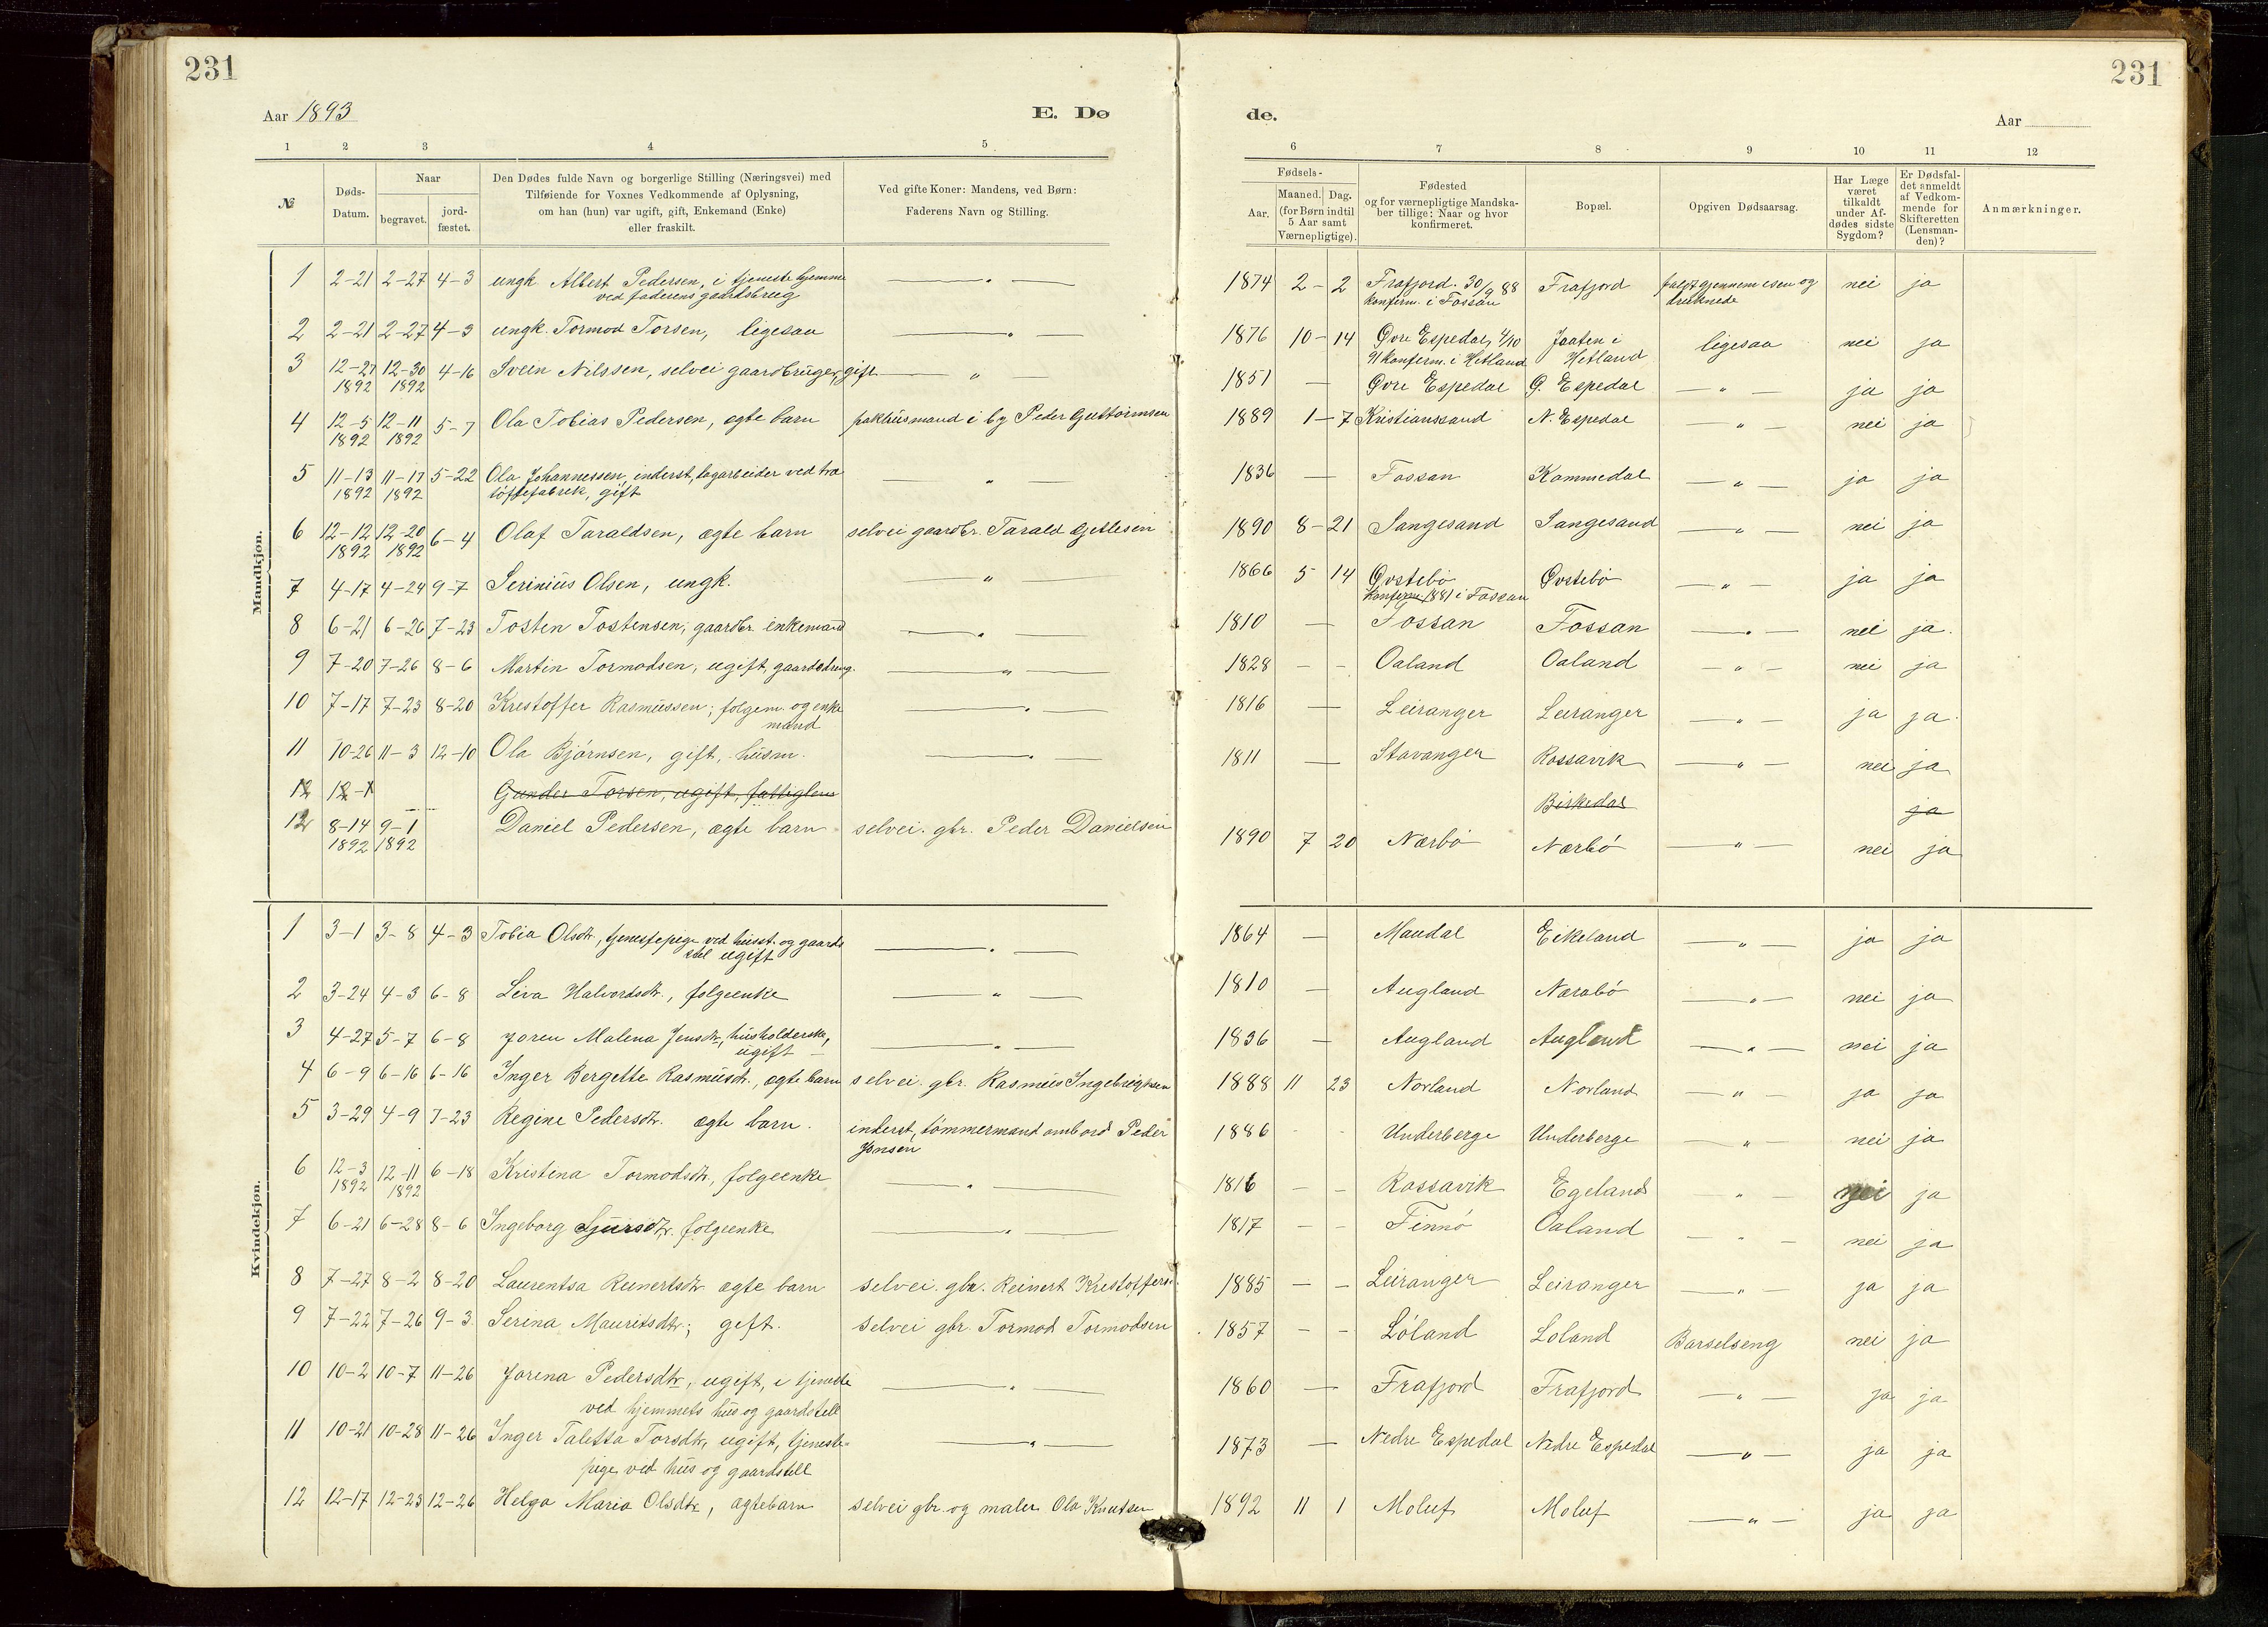 231
231
Aar 1893
E. Dø
de.
Aar
1 2 3 4 5
6 7 8 9 10 11 12
№
Døds-
Datum.
Naar
begravet.
jord-
fæstet.
Den Dødes fulde Navn og borgerlige Stilling (Næringsvei) med
Tilføiende for Voxnes Vedkommende af Oplysning,
om han (hun) var ugift, gift, Enkemand (Enke)
eller fraskilt.
Ved gifte Koner: Mandens, ved Børn:
Faderens Navn og Stilling.
Fødsels-
Aar.
Maaned. Dag.
(for Børn indtil
5 Aar samt
Værnepligtige).
Fødested
og for værnepligtige Mandska-
ber tillige: Naar og hvor
konfirmeret.
Bopæl.
Opgiven Dødsaarsag.
Har Læge
været
tilkaldt
under Af-
dødes sidste
Sygdom?
Er Dødsfal-
det anmeldt
af Vedkom-
mende for
Skifteretten
(Lensman-
den)?
Anmærkninger.
Mandkjøn.
1 2-21 2-27 4-3 ungk. Albert Pedersen, i tjeneste hjemme — " — 1874 2-2 Frafjord. 30/9 88 Frafjord faldt gjennem isen og nei ja
ved faderens gaardsbrug konferm. i Fossan druknede
2 2-21 2-27 4-3 ungk. Tormod Torsen, ligesaa — " — 1876 10-14 Øvre Espedal, 4/10 Jaaten i ligesaa nei ja
91 konferm. i Hetland Hetland
3 12-27 12-30 4-16 Svein Nilssen, selvei gaardbruger, gift — " — 1851 — Øvre Espedal Ø. Espedal — " — ja ja
1892 1892
4 12-5 12-11 5-7 Ola Tobias Pedersen, ægte barn pakhusmand i by Peder Guttormsen 1889 1-7 Kristianssand N. Espedal — " — nei ja
1892 1892
5 11-13 11-17 5-22 Ola Johannessen, inderst, dagarbeider ved træ — " — 1836 — Fossan Kommedal — " — ja ja
1892 1892 töffelfabrik, gift
6 12-12 12-20 6-4 Olaf Taraldsen, ægte barn selvei gaardbr. Tarald Gitlesen 1890 8-21 Sangesand Sangesand — " — nei ja
1892 1892
7 4-17 4-24 9-7 Serinius Olsen, ungk. — " — 1866 5 14 Øvstebø Øvstebø — " — ja ja
konferm. 1881 i Fossan
8 6-21 6-26 7-23 Tosten Tostensen, gaardbr. enkemand — " — 1810 — Fossan Fossan — " — nei ja.
9 7-20 7-26 8-6 Martin Tormodsen, ugift, gaardsdreng. — " — 1828 - - Oaland Oaland — " — nei ja
10 7-17 7-23 8-20 Krestoffer Rasmussen; folgem. og enke — " — 1816 — Leiranger Leiranger — " — ja ja.
mand
11 10-26 11-3 12-10 Ola Bjørnsen, gift, husm. — " — 1811 — Stavanger Rossavik — " — nei ja
12 12-1 Gunder Torsen, ugift, fattiglem Birkedal ja
12 8-14 9-1 Daniel Pedersen, ægte barn selvei. gbr. Peder Danielsen 1890 7 20 Nærbø Nærbø — " — nei ja
1892 1892
Kvindekjøn.
1 3-1 3-8 4-3 Tobia Olsdtr, tjenestepige ved husst. og gaards — " — 1864 — Maudal Eikeland — " — ja ja
stel ugift
2 3-24 4-3 6-8 Siva Halvordsdtr., folgeenke — " — 1810 — Augland Nærabø — " — nei ja
3 4-27 5-7 6-8 Joren Malena Jensdtr, husholderske, — " — 1836 — Augland Augland — " — nei ja
ugift
4 6-9 6-16 6-16 Inger Bergette Rasmusdtr., ægte barn selvei. gbr. Rasmus Ingebrigtsen 1888 11 23 Norland Norland — " — ja ja
5 3-29 4-9 7-23 Regine Pedersdtr. ægte barn. inderst, tömmermand ombord Peder 1886 - - Underberge Underberge — " — nei ja
Jonsen
6 12-3 12-11 6-18 Kristina Tormodsdtr., folgeenke — " — 1816 - - Rossavik Egeland — " — nei ja
1892 1892
7 6-21 6-28 8-6 Ingeborg Sjursdtr. folgeenke — " — 1817 - - Finnö Oaland — " — nei ja
8 7-27 8-2 8-20 Laurentsa Reinertsdtr ægte barn selvei. gbr. Reinert Kristoffers. 1885 - - Leiranger Leiranger — " — ja ja
9 7-22 7-26 9-3 Serina Mauritsdtr; gift. selvei gbr. Tormod Tormodsen 1857 - - Löland Loland Barselseng nei ja
10 10-2 10-7 11-26 Jorina Pedersdtr, ugift, i tjeneste — " — 1860 — Frafjord Frafjord — " — ja ja
ved hjemmets hus og gaardstell
11 10-21 10-28 11-26 Inger Taletta Torsdtr, ugift, tjeneste- — " — 1873 — Nedre Espedal Nedre Espedal — " — ja ja
pige ved hus og gaardstell
12 12-17 12-23 12-26 Helga Maria Olsdtr, ægtebarn selvei gbr. og maler Ola Knutsen 1892 11 1 Moluf Moluf — " — ja ja